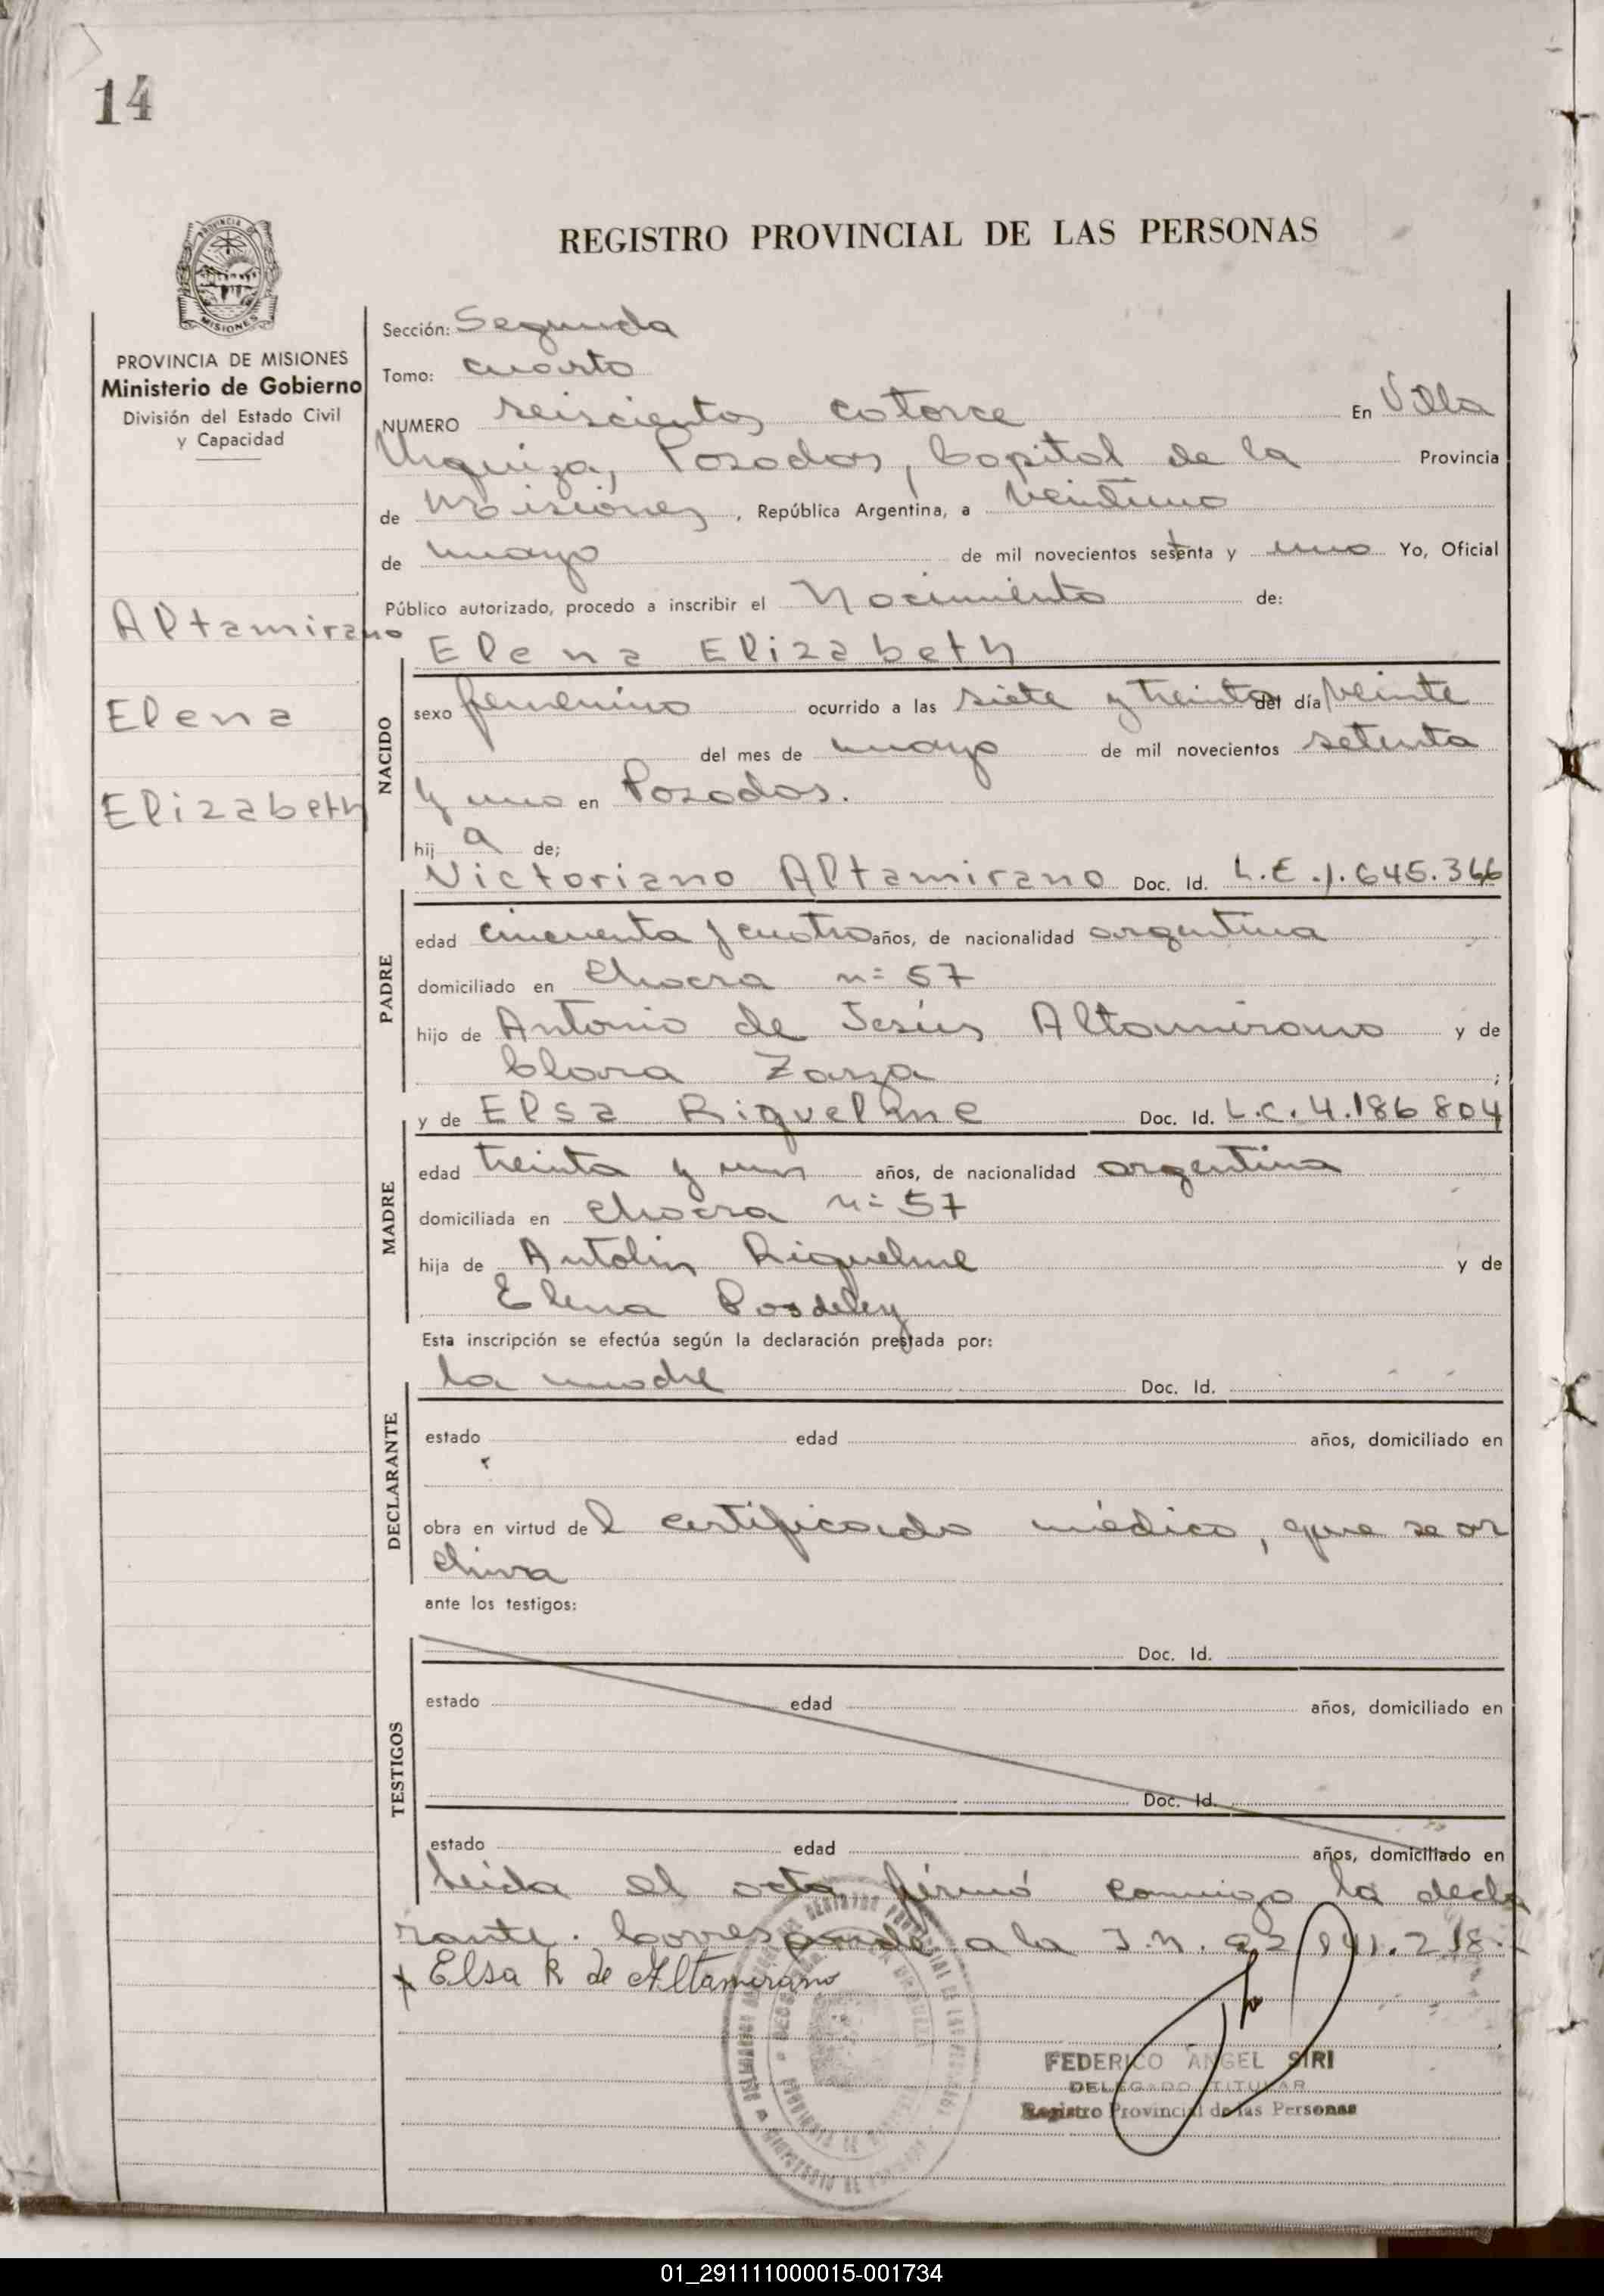 14
REGISTRO PROVINCIAL DE LAS PERSONAS
PROVINCIA DE MISIONES
Ministerio de Gobierno
División del Estado Civil
y Capacidad
Altamirano
Elena
Elizabeth
Sección: Segunda
Tomo: cuarto
NUMERO seiscientos catorce En Villa
Urquiza, Posadas, Capital de la Provincia
de Misiones, República Argentina, a veintiuno
de mayo de mil novecientos setenta y uno Yo, Oficial
Público autorizado, procedo a inscribir el Nacimiento de:
Elena Elizabeth
NACIDO
sexo femenino ocurrido a las siete y treinta del día veinte
del mes de mayo de mil novecientos setenta
y uno en Posadas.
hija de;
Victoriano Altamirano Doc. Id. L.E. 1.645.366
PADRE
edad cincuenta y cuatro años, de nacionalidad argentina
domiciliado en Chacra n= 57
hijo de Antonio de Jesús Altamirano y de
Clara Zarza ;
y de Elsa Riquelme Doc. Id. L.C. 4.186 804
MADRE
edad treinta y un años, de nacionalidad argentina
domiciliada en Chacra n= 57
hija de Antolin Riquelme y de
Elena
Esta inscripción se efectúa según la declaración prestada por:
la madre Doc. Id.
DECLARANTE
estado edad años, domiciliado en
obra en virtud del certificado médico, que se ar
chiva
ante los testigos:
Doc. Id.
TESTIGOS
estado edad años, domiciliado en
Doc. Id.
estado edad años, domiciliado en
Leida el acta firmó conmigo la decla
rante. Corresponde a la
Elsa R de Altamirano
FEDERICO ANGEL SIRI
DELEGADO TITULAR
Registro Provincial de las Personas
01_291111000015-001734